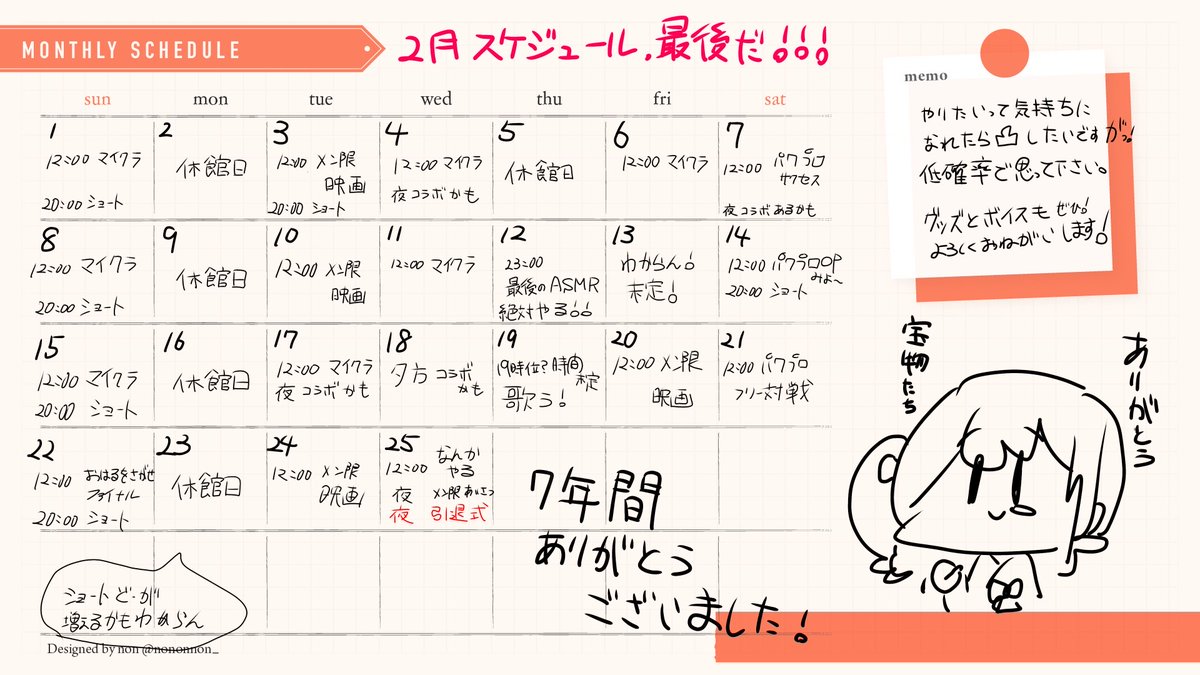 MONTHLY SCHEDULE
2月スケジュール、最後だ!!!
sun mon tue wed thu fri sat
1
12:00 マイクラ
20:00 ショート
2
休館日
3
12:00 メン限
映画
20:00 ショート
4
12:00 マイクラ
夜 コラボかも
5
休館日
6
12:00 マイクラ
7
12:00 パワプロ
サクセス
夜 コラボあるかも
8
12:00 マイクラ
20:00 ショート
9
休館日
10
12:00 メン限
映画
11
12:00 マイクラ
12
23:00
最後のASMR
絶対やる!!
13
わからん!
未定!
14
12:00 パワプロOP
みよ〜
20:00 ショート
15
12:00 マイクラ
20:00 ショート
16
休館日
17
12:00 マイクラ
夜 コラボかも
18
夕方 コラボ
かも
19
19時位?時間
未定
歌う!
20
12:00 メン限
映画
21
12:00 パワプロ
フリー対戦
22
12:00 おはるをさがせ
ファイナル
20:00 ショート
23
休館日
24
12:00 メン限
映画
25
12:00 なんか
やる
夜 メン限あいさつ
夜 引退式
7年間
ありがとう
ございました!
ショートどーが
増えるかもわからん
Designed by non @nononnon_
memo
やりたいって気持ちに
なれたら凸したいですがっ!
低確率で思って下さい。
グッズとボイスもぜひ!
よろしくおねがいします!
宝物たち
ありがとう